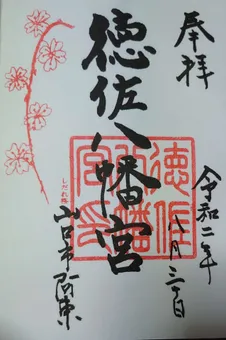 奉拝
令和二年
八月三十日
徳佐八幡宮
しだれ桜
山口市阿東
徳佐八幡宮印